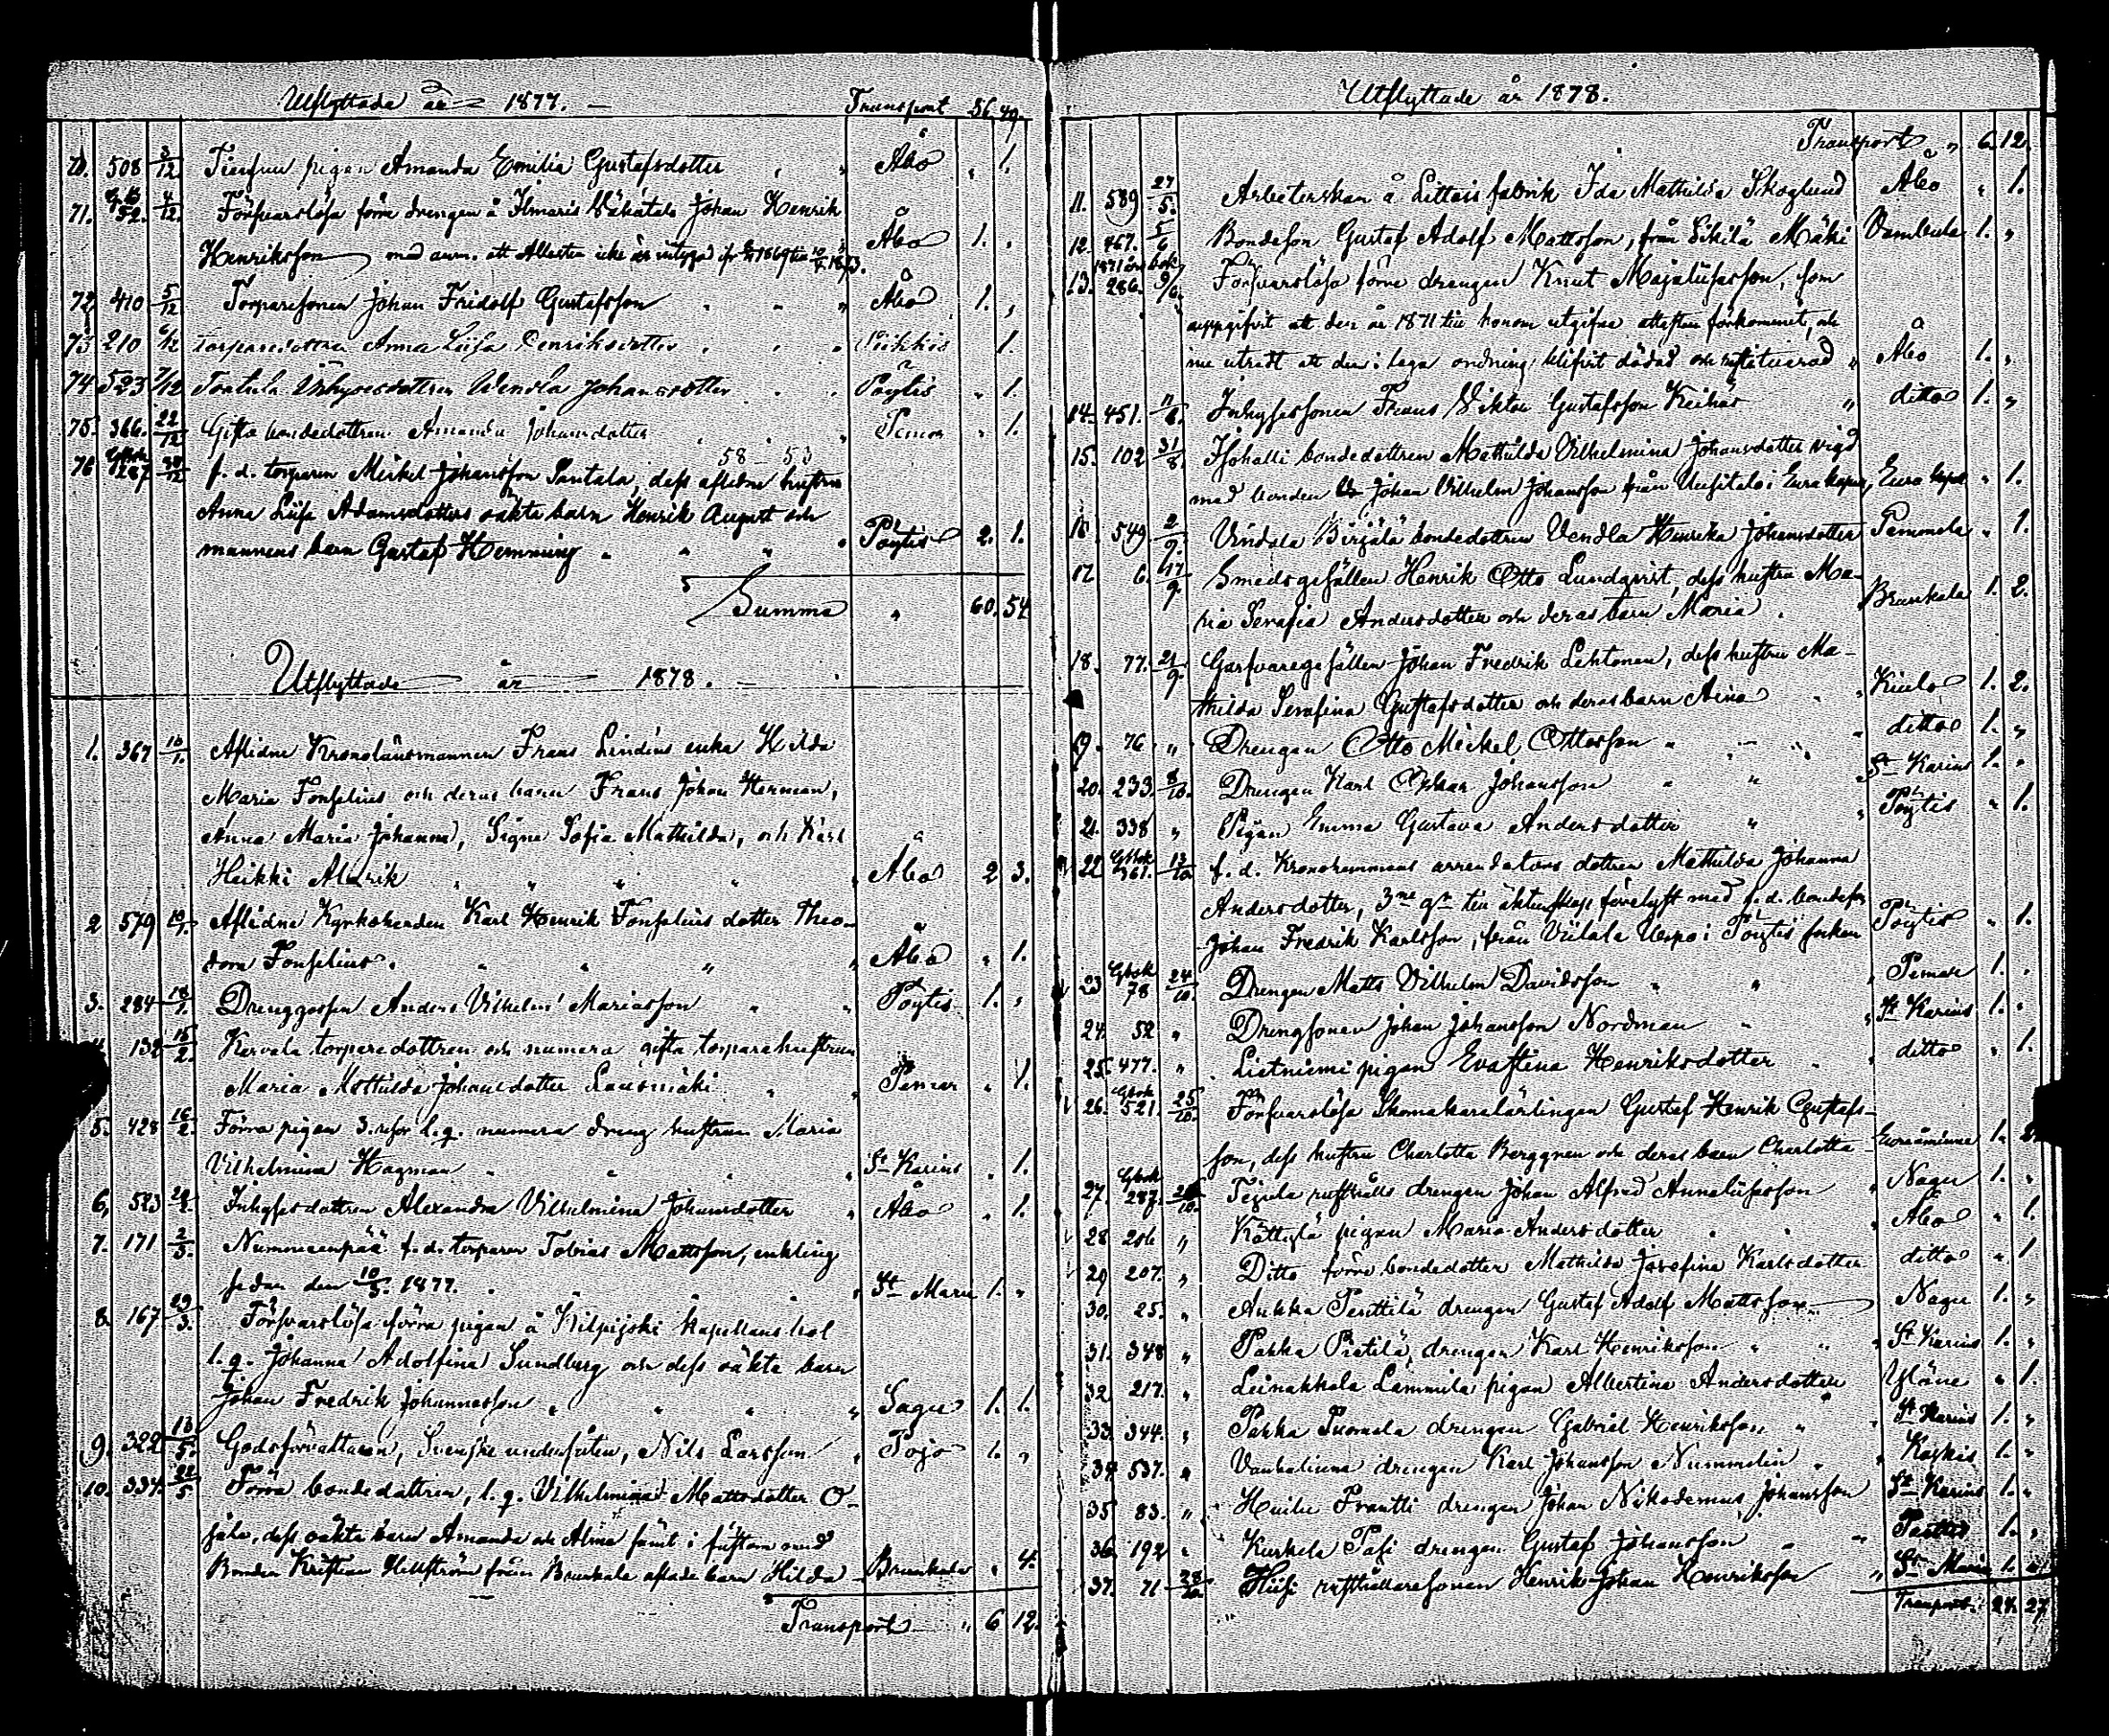 Utflyttade år 1877. Transport 56. 49.
70. 508 3/12 Tienfuu pigan Amanda Emilia Gustafsdotter " " Åbo " 1.
71. 52. 4/12 Förfvarslösa förre drengen å Ilmaris Väkätalo Johan Henrik
Henriksson med anm. att Attesten icke är intygad Åbo 1. "
72 410 5/12 Torparesonen Johan Fridolf Gustafsson " " Åbo 1. "
73 210 6/12 Torparedottren Anna Lisa Henriksdotter " " Piikkis 1.
74 523 7/12 Tortula Inhysesdottren Wendla Johansdotter " " Pöytis " 1.
75. 366. 22/12 Gifta bondedottren Amanda Johansdotter " " Pemar " 1.
58 53
76 287 f. d. torparen Mickel Johansson Santala, dess aflidne hustru
Anna Lisa Adamsdotters oäkta barn Henrik August och
mannens barn Gustaf Hemming " " " Pöytis 2. 1.
Summa " 60. 54
Utflyttade år 1878.
1. 367 Aflidne Kronolänsmannen Frans Lindéns enka Hilda
Maria Fonselius och deras barn Frans Johan Herman,
Anna Maria Johanna, Signe Sofia Mathilda, och Karl
Heikki Alarik " " " " Åbo 2 3.
2 579 Aflidne Kyrkoherden Karl Henrik Fonselius dotter Theo-
dora Fonselius. " " " " Åbo " 1.
3. 284 18/1. Drenggossen Anders Vilhelm Mariasson " " Pöytis 1. "
132 15/2. Kervala torparedottren och numera gifta torparehustrun
Maria Mathilda Johansdotter Lausmäki " " Pemar " 1.
5. 428 16/2. Förra pigan 3. resor l. q. numera dreng hustrun Maria
Vilhelmina Hagman " " " St Karins " 1.
6. 523 Inhysesdottren Alexandra Vilhelmina Johansdotter " Åbo " 1.
7. 171 2/3. Nummenpää f. d. torparen Tobias Mattsson, enkling
sedan den 10/5. 1877. " " " St Marie 1. "
8. 167 29/3. Förfvarslösa förra pigan å Kilpijoki Kapellans bol
l. q. Johanna Adolfina Sundberg och dess oäkta barn
Johan Fredrik Johannesson " " " " Sagu 1. 1.
9. 322 13/5. Godsförvaltaren, Svenske undersåten, Nils Larsson " Pojo 1. "
10. 334. 22/5 Förra bondedottren, l. q. Vilhelmina Mattsdotter O-
jala, dess oäkta barn Amanda och Alma samt i
Bonden Kristian Hellström från Brunkala aflade barn Hilda Brunkala " 4.
Transport " 6 12.
Utflyttade år 1878.
Transport " 6. 12.
11. 589 27/5. Arbeterskan å Littois fabrik Ida Mathilda Skoglund Åbo " 1.
12. 467. 5/6 Bondeson Gustaf Adolf Mattsson, från Sikilä Mäki Vambula 1. "
13. 286. 9/6. Förfvarslösa förre drengen Knut Majalisasson, som
uppgifvit att den år 1871 till honom utgifna attesten förkommit, och
nu utredt att den i laga ordning blifvit dödad " Åbo 1. "
14. 451. 11/8. Inhysessonen Frans Viktor Gustafsson Keihäs " ditto 1. "
15. 102 31/8. Isohalli bondedottren Mathilda Vilhelmina Johansdotter vigd
med bonden Johan Vilhelm Johansson från Uusitalo i Eura kapell, Eura kapell " 1.
16 549 2/9. Vindala Birjälä bondedottren Vendla Henrika Johansdotter Pemmola " 1.
17 6. 17/9. Smedsgesällen Henrik Otto Lundqvist, dess hustru Ma-
ria Serafia Andersdotter och deras barn Maria " Brunkala 1. 2.
18. 77. 21/9. Garfvaregesällen Johan Fredrik Lehtonen, dess hustru Ma-
thilda Serafina Gustafsdotter och deras barn Aina " " Kiulo 1. 2.
19. 76 " Drengen Otto Mickel Ottosson " " " ditto 1. "
20. 233 8/10. Drengen Karl Oskar Johansson " " " St Karins 1. "
21. 338 " Pigan Emma Gustava Andersdotter " " Pöytis " 1.
22 361. 13/10 f. d. Kronohemmans arrendators dottren Mathilda Johanna
Andersdotter, 3ne gr till äktenskap förelyst med f. d. bondeson
Johan Fredrik Karlsson, från Viilala Uespo i Pöytis socken Pöytis " 1.
23 78 24/10. Drengen Matts Vilhelm Davidsson " " " Pemar 1. "
24. 52 " Drengsonen Johan Johansson Nordman " " St Karins 1. "
25. 477. " Lietniemi pigan Evastina Henriksdotter " ditto " 1.
26. 521. 25/10. Förfvarslösa Skomakarelärlingen Gustaf Henrik Gustafs-
son, dess hustru Charlotta Berggren och deras barn Charlotta Euraåminne 1. 2.
27. 287. Teijula rusthålls drengen Johan Alfred Annalisasson " Nagu 1. "
28 206 " Kättylä pigan Maria Andersdotter " " Åbo " 1.
29 207. " Ditto förre bondedotter Mathilda Josefina Karlsdotter ditto " 1
30. 25. " Ankka Penttilä drengen Gustaf Adolf Mattsson " Nagu 1. "
31. 348 " Pakka Pietilä drengen Karl Henriksson " " " St Karins 1. "
32 217. " Leinakkala Lammila pigan Albertina Andersdotter " Yläne " 1.
33 344. " Pakka Tuomola drengen Gabriel Henriksson " " St Karins 1. "
34 537. " Vanhalinna drengen Karl Johansson Nummelin " " Koskis 1. "
35 83. " Huilu Frantti drengen Johan Nikodemus Johansson St Karins 1. "
36. 192 " Kurkela Pasi drengen Gustaf Johansson " " 1. "
37. 71 28/10. Hiisi rusthållaresonen Henrik Johan Henriksson " St Marie 1. "
Transport: 24. 27